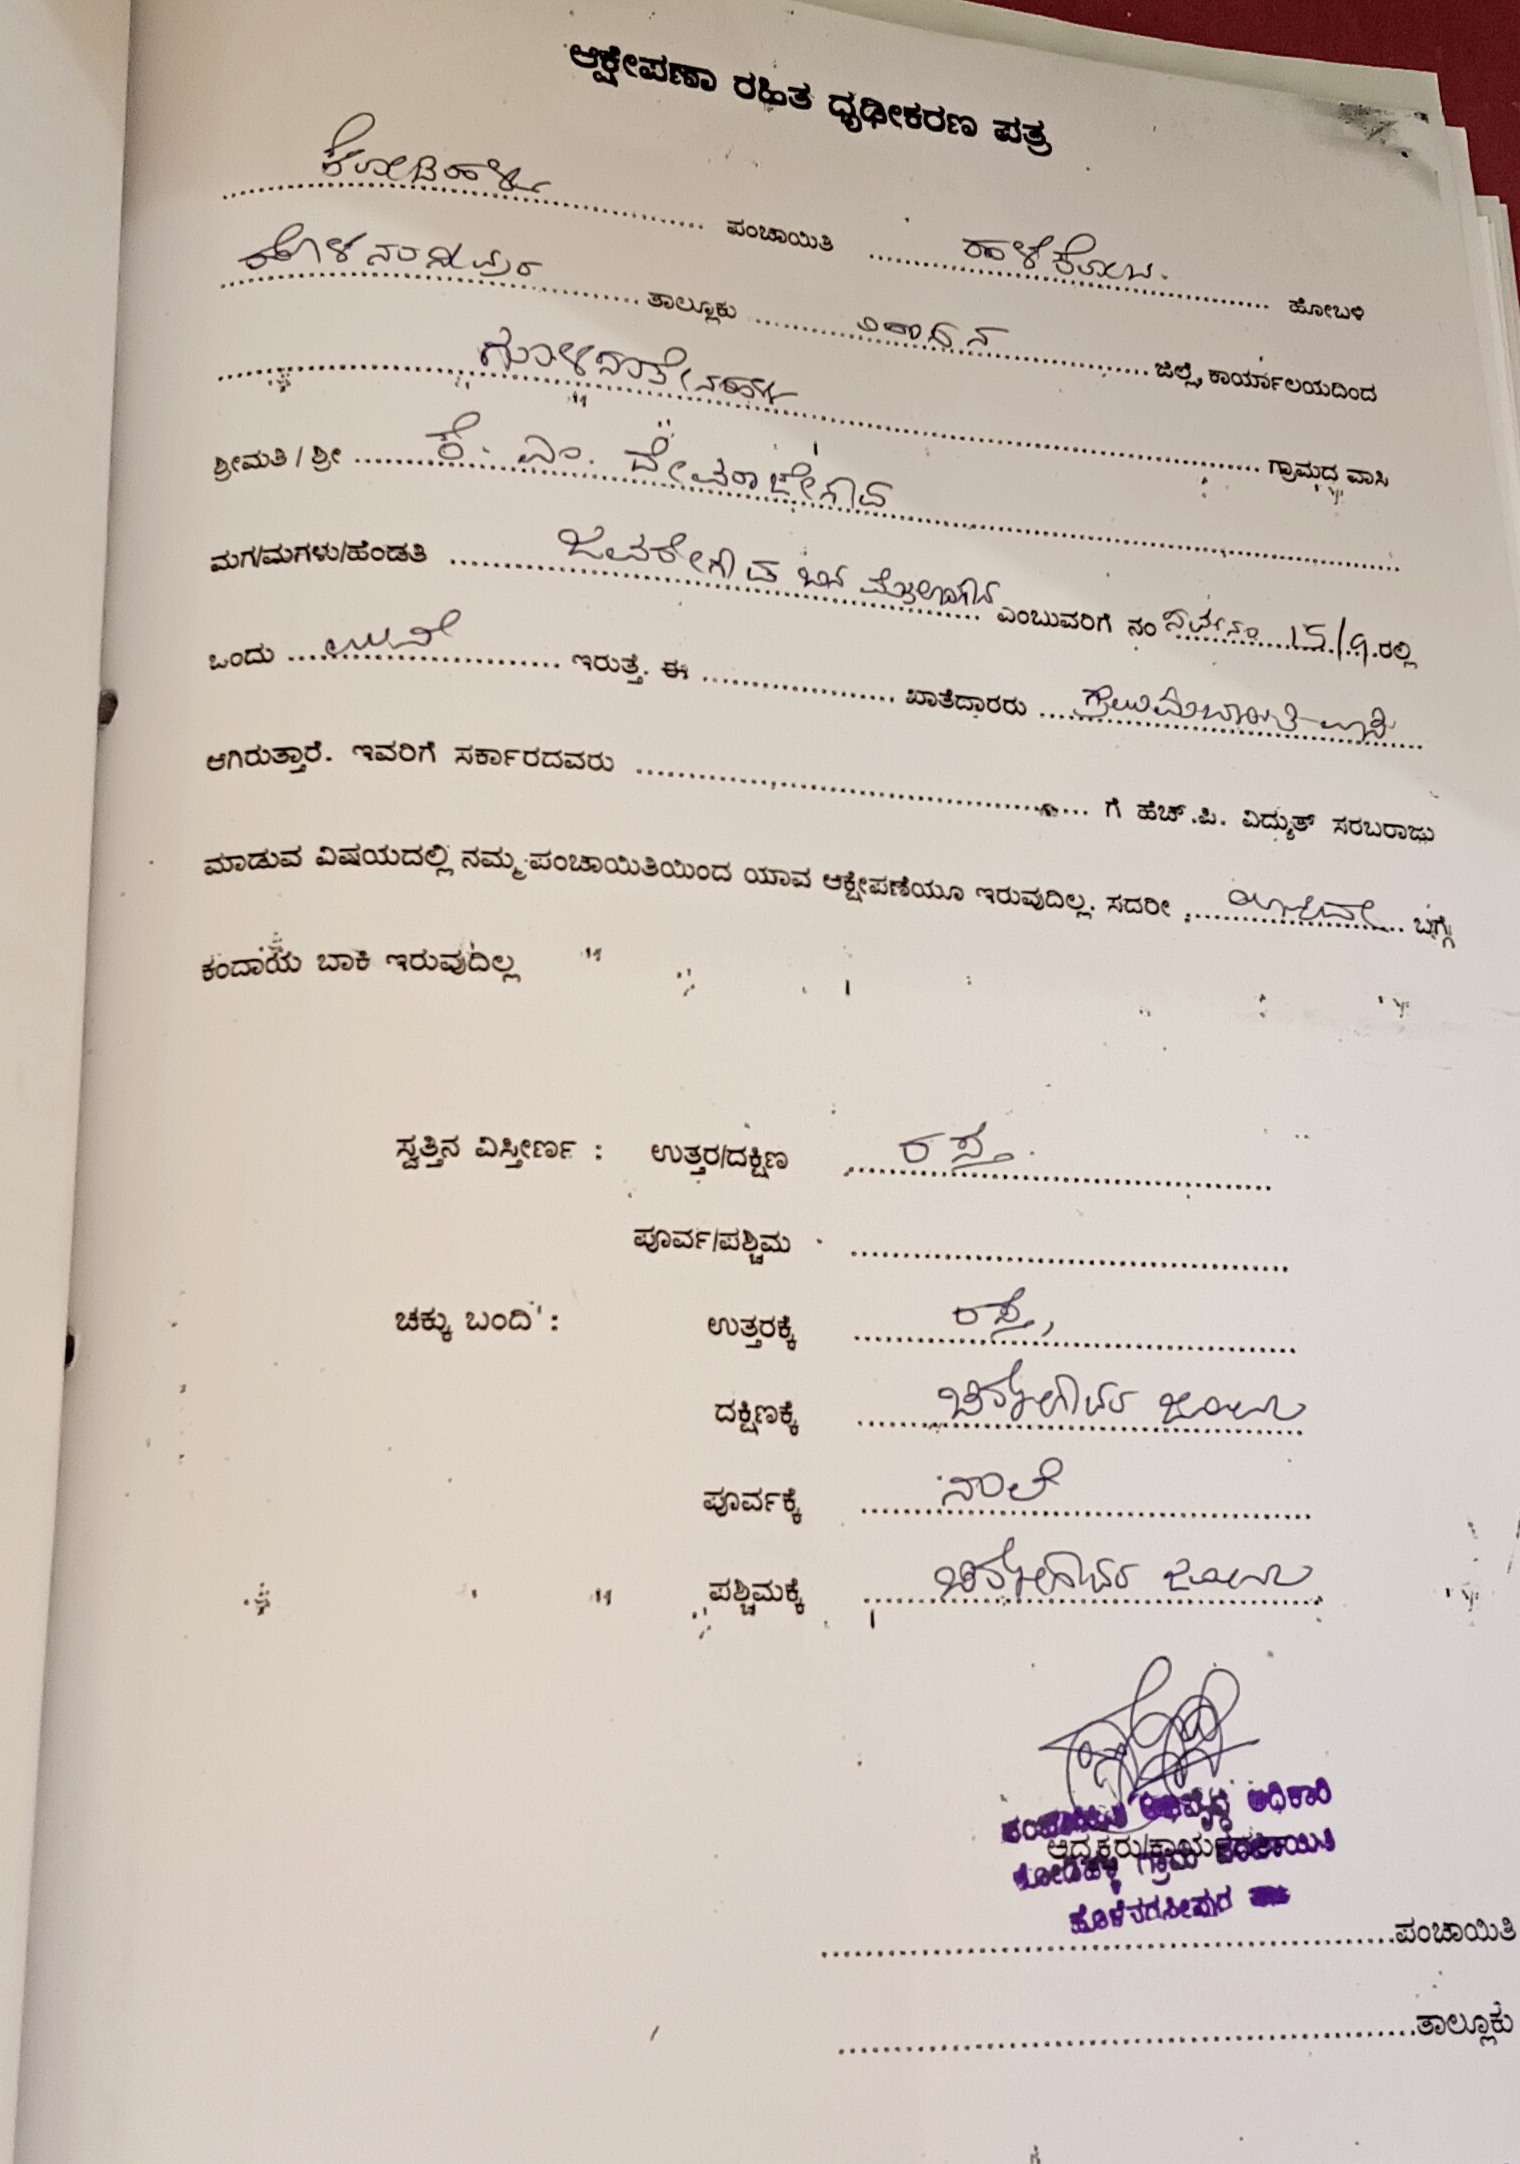 ಆಕ್ಷೇಪಣಾ ರಹಿತ ಧೃಢೀಕರಣ ಪತ್ರ
ಕೋಡಿಹಳ್ಳಿ ಪಂಚಾಯಿತಿ ಹಳೆಕೋಟೆ ಹೋಬಳಿ
ಹೊಳೆನರಸೀಪುರ ತಾಲ್ಲೂಕು ಹಾಸನ ಜಿಲ್ಲೆ, ಕಾರ್ಯಾಲಯದಿಂದ
ಗ್ರಾಮದ ವಾಸಿ
ಶ್ರೀಮತಿ / ಶ್ರೀ ಕೆ. ಎಂ. ದೇವರಾಜೇಗೌಡ
ಮಗ/ಮಗಳು/ಹೆಂಡತಿ ಜವರೇಗೌಡ ಬಿನ್ ಎಂಬುವರಿಗೆ ನಂ ಸರ್ವೆ ನಂ 15/9 ರಲ್ಲಿ
ಒಂದು ಇರುತ್ತೆ. ಈ ಖಾತೆದಾರರು
ಆಗಿರುತ್ತಾರೆ. ಇವರಿಗೆ ಸರ್ಕಾರದವರು ಗೆ ಹೆಚ್.ಪಿ. ವಿದ್ಯುತ್ ಸರಬರಾಜು
ಮಾಡುವ ವಿಷಯದಲ್ಲಿ ನಮ್ಮ ಪಂಚಾಯಿತಿಯಿಂದ ಯಾವ ಆಕ್ಷೇಪಣೆಯೂ ಇರುವುದಿಲ್ಲ. ಸದರೀ ಬಗ್ಗೆ
ಕಂದಾಯ ಬಾಕಿ ಇರುವುದಿಲ್ಲ
ಸ್ವತ್ತಿನ ವಿಸ್ತೀರ್ಣ : ಉತ್ತರ/ದಕ್ಷಿಣ ರಸ್ತೆ.
ಪೂರ್ವ/ಪಶ್ಚಿಮ
ಚಕ್ಕು ಬಂದಿ : ಉತ್ತರಕ್ಕೆ ರಸ್ತೆ,
ದಕ್ಷಿಣಕ್ಕೆ ಜಮೀನು
ಪೂರ್ವಕ್ಕೆ ನಾಲೆ
ಪಶ್ಚಿಮಕ್ಕೆ ಜಮೀನು
ಪಂಚಾಯಿತಿ ಅಭಿವೃದ್ಧಿ ಅಧಿಕಾರಿ
ಅಧ್ಯಕ್ಷರು/ಕಾರ್ಯದರ್ಶಿ
ಕೋಡಿಹಳ್ಳಿ ಗ್ರಾಮ ಪಂಚಾಯಿತಿ
ಹೊಳೆನರಸೀಪುರ
ಪಂಚಾಯಿತಿ
ತಾಲ್ಲೂಕು